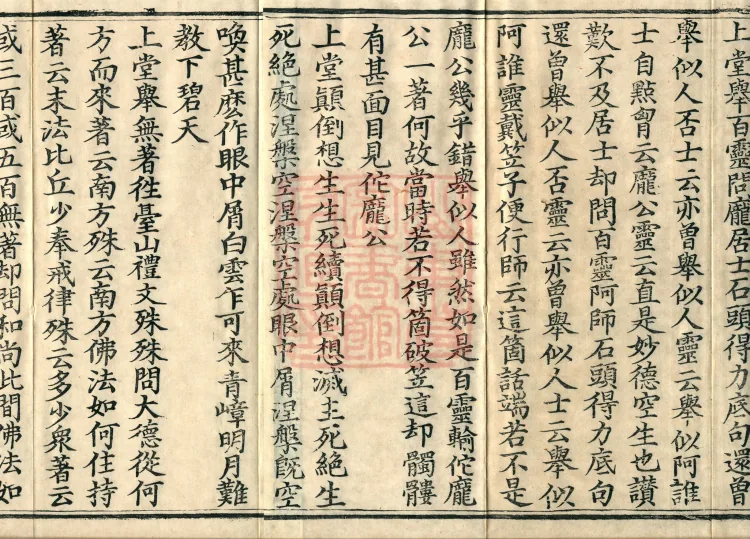 上堂舉百靈問龐居士石頭得力底句還曾
舉似人否士云亦曾舉似人靈云舉似阿誰
士自點胷云龐公靈云直是妙德空生也讃
歎不及居士却問百靈阿師石頭得力底句
還曽舉似人否靈云亦曾舉似人士云舉似
阿誰靈戴笠子便行師云這箇話端若不是
龐公幾乎錯舉似人雖然如是百靈輸佗龐
公一著何故當時若不得箇破笠這却髑髏
有甚面目見佗龐公
上堂顛倒想生生死續顛倒想滅生死絕生
死絕處涅槃空涅槃空處眼中屑涅槃旣空
喚甚麽作眼中屑白雲乍可來青嶂明月難
教下碧天
上堂舉無著徃臺山禮文殊殊問大德從何
方而來著云南方殊云南方佛法如何住持
著云末法比丘少奉戒律殊云多少衆著云
或三百或五百無著却問和尚此間佛法如